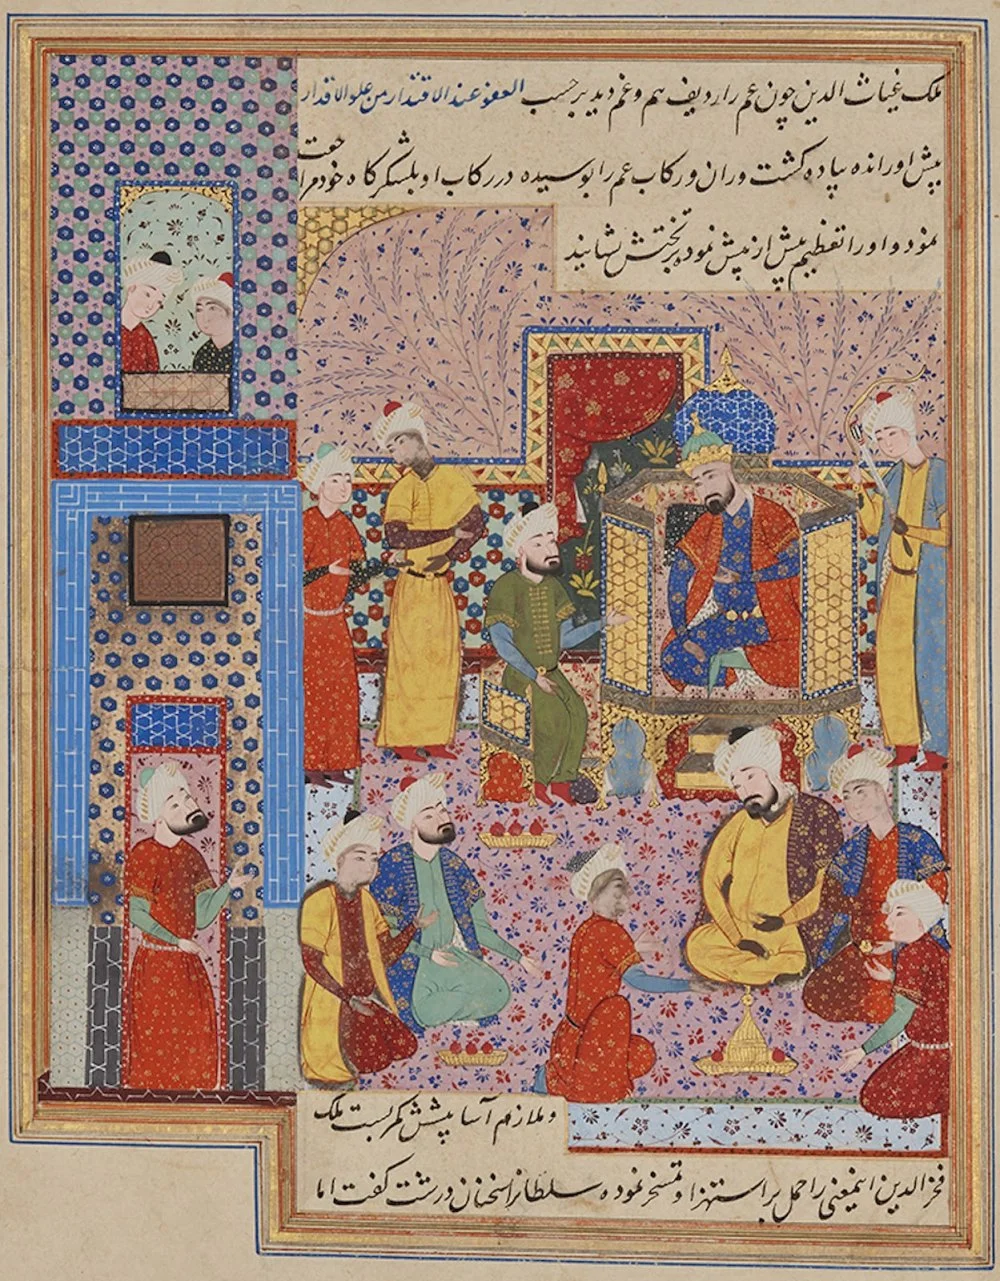 ملک غیاث الدین چون عم را ردیف هم و غم دید بر حسب العفو عند الاقتدار من علو الاقدار
پیش او رانده پیاده گشت و ران و رکاب عم را بوسیده در رکاب او بلشکرگاه خود مراجعت
نمود و او را تعظیم پیش از پیش نموده بر تختش نشانید
و ملازم آسا پیشش کمر بست ملک
فخرالدین اینمعنی را حمل بر استهزا و تمسخر نموده سلطانرا سخنان درشت گفت اما